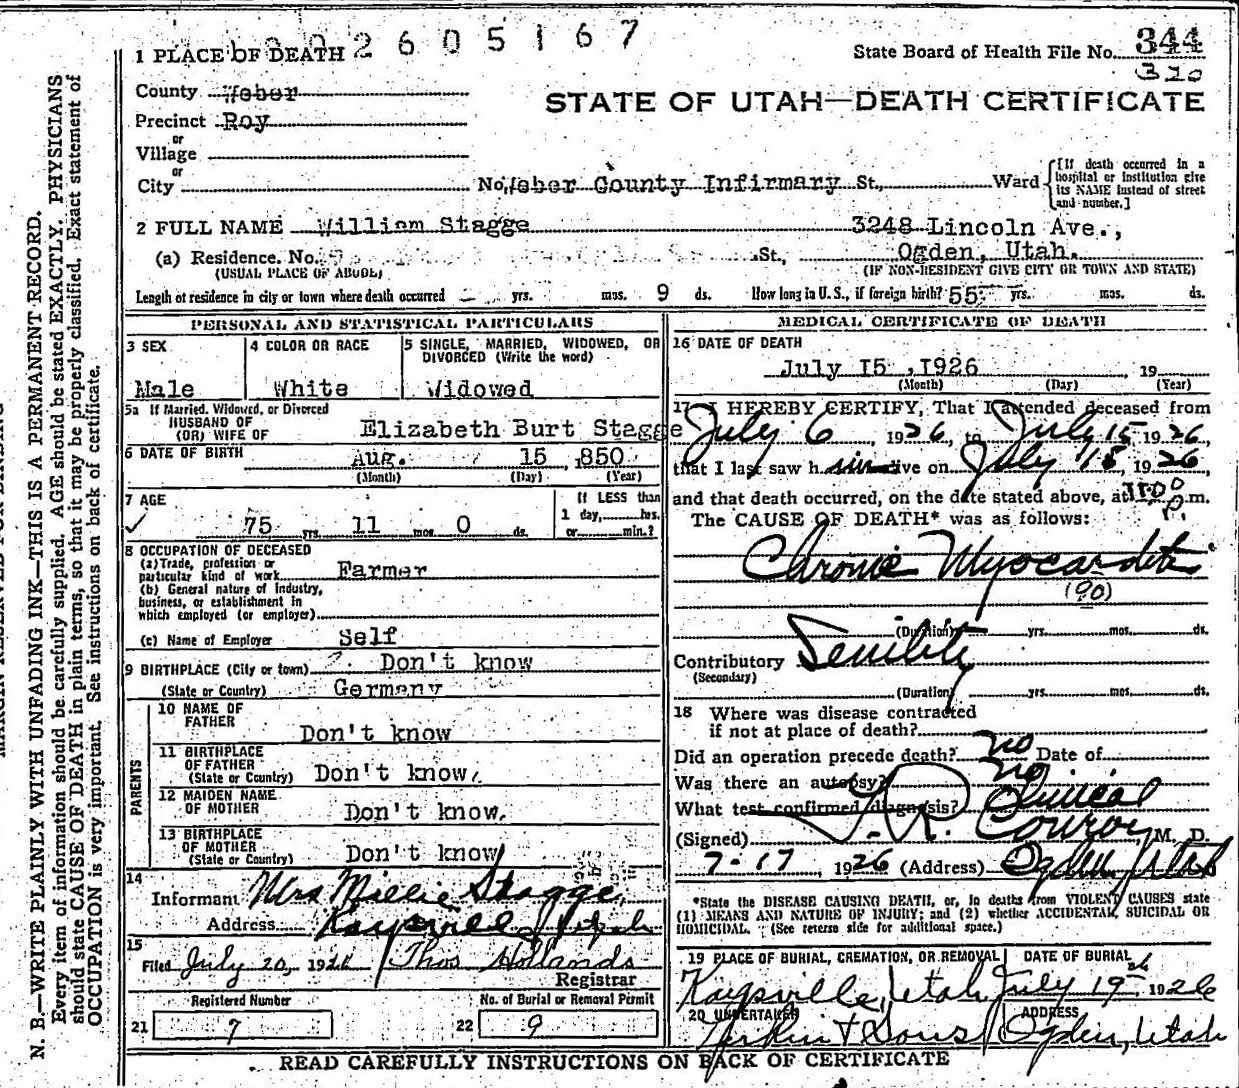 2605167
1 PLACE OF DEATH
State Board of Health File No. 344
320
County Weber
STATE OF UTAH—DEATH CERTIFICATE
Precinct Roy
or
Village
or
City
No. Weber County Infirmary St., Ward
[If death occurred in a hospital or institution give its NAME instead of street and number.]
2 FULL NAME William Stagge
3248 Lincoln Ave.,
(a) Residence. No. St., Ogden, Utah.
(USUAL PLACE OF ABODE)
(IF NON-RESIDENT GIVE CITY OR TOWN AND STATE)
Length of residence in city or town where death occurred yrs. mos. 9 ds. How long in U.S., if foreign birth? 55 yrs. mos. ds.
PERSONAL AND STATISTICAL PARTICULARS
3 SEX
4 COLOR OR RACE
5 SINGLE, MARRIED, WIDOWED, OR DIVORCED (Write the word)
Male
White
Widowed
5a If Married, Widowed, or Divorced
HUSBAND OF
(OR) WIFE OF
Elizabeth Burt Stagge
6 DATE OF BIRTH Aug. 15 1850
(Month) (Day) (Year)
7 AGE
If LESS than
1 day, hrs.
or min.?
75 yrs. 11 mos. 0 ds.
8 OCCUPATION OF DECEASED
(a) Trade, profession or
particular kind of work Farmer
(b) General nature of industry,
business, or establishment in
which employed (or employer)
(c) Name of Employer Self
9 BIRTHPLACE (City or town) Don't know
(State or Country) Germany
PARENTS
10 NAME OF
FATHER
Don't know
11 BIRTHPLACE
OF FATHER
(State or Country) Don't know.
12 MAIDEN NAME
OF MOTHER
Don't know.
13 BIRTHPLACE
OF MOTHER
(State or Country)
Don't know
14
Informant Mrs Millie Stagge,
Address Kaysville Utah
15
Filed July 20, 1926 Thos Hollands
Registrar
Registered Number
No. of Burial or Removal Permit
21 7
22 9
MEDICAL CERTIFICATE OF DEATH
16 DATE OF DEATH
July 15, 1926 19
(Month) (Day) (Year)
17 I HEREBY CERTIFY, That I attended deceased from
July 6, 1926, to July 15 1926,
that I last saw him alive on July 15, 1926,
and that death occurred, on the date stated above, at 11:00 P. m.
The CAUSE OF DEATH* was as follows:
Chronic Myocarditis
(90)
(Duration) yrs. mos. ds.
Contributory Senility
(Secondary)
(Duration) yrs. mos. ds.
18 Where was disease contracted
if not at place of death?
Did an operation precede death? no Date of
Was there an autopsy? no
What test confirmed diagnosis? Clinical
(Signed) J. R. Conroy M. D.
7-17 1926 (Address) Ogden, Utah
*State the DISEASE CAUSING DEATH, or, in deaths from VIOLENT CAUSES state
(1) MEANS AND NATURE OF INJURY; and (2) whether ACCIDENTAL, SUICIDAL OR
HOMICIDAL. (See reverse side for additional space.)
19 PLACE OF BURIAL, CREMATION, OR REMOVAL
DATE OF BURIAL
Kaysville, Utah July 19th 1926
20 UNDERTAKER
ADDRESS
& Sons Ogden, Utah
READ CAREFULLY INSTRUCTIONS ON BACK OF CERTIFICATE
N. B.—WRITE PLAINLY WITH UNFADING INK—THIS IS A PERMANENT RECORD.
Every item of information should be carefully supplied. AGE should be stated EXACTLY. PHYSICIANS
should state CAUSE OF DEATH in plain terms, so that it may be properly classified. Exact statement of
OCCUPATION is very important. See instructions on back of certificate.